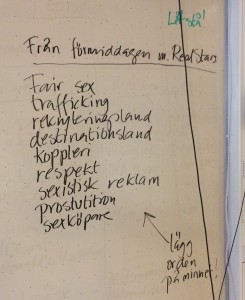 Låt stå!
Från förmiddagen m. RealStars
Fair sex
trafficking
rekryteringsland
destinationsland
koppleri
respekt
sexistisk reklam
Prostitution
sexköpare
lägg
orden
på minnet!